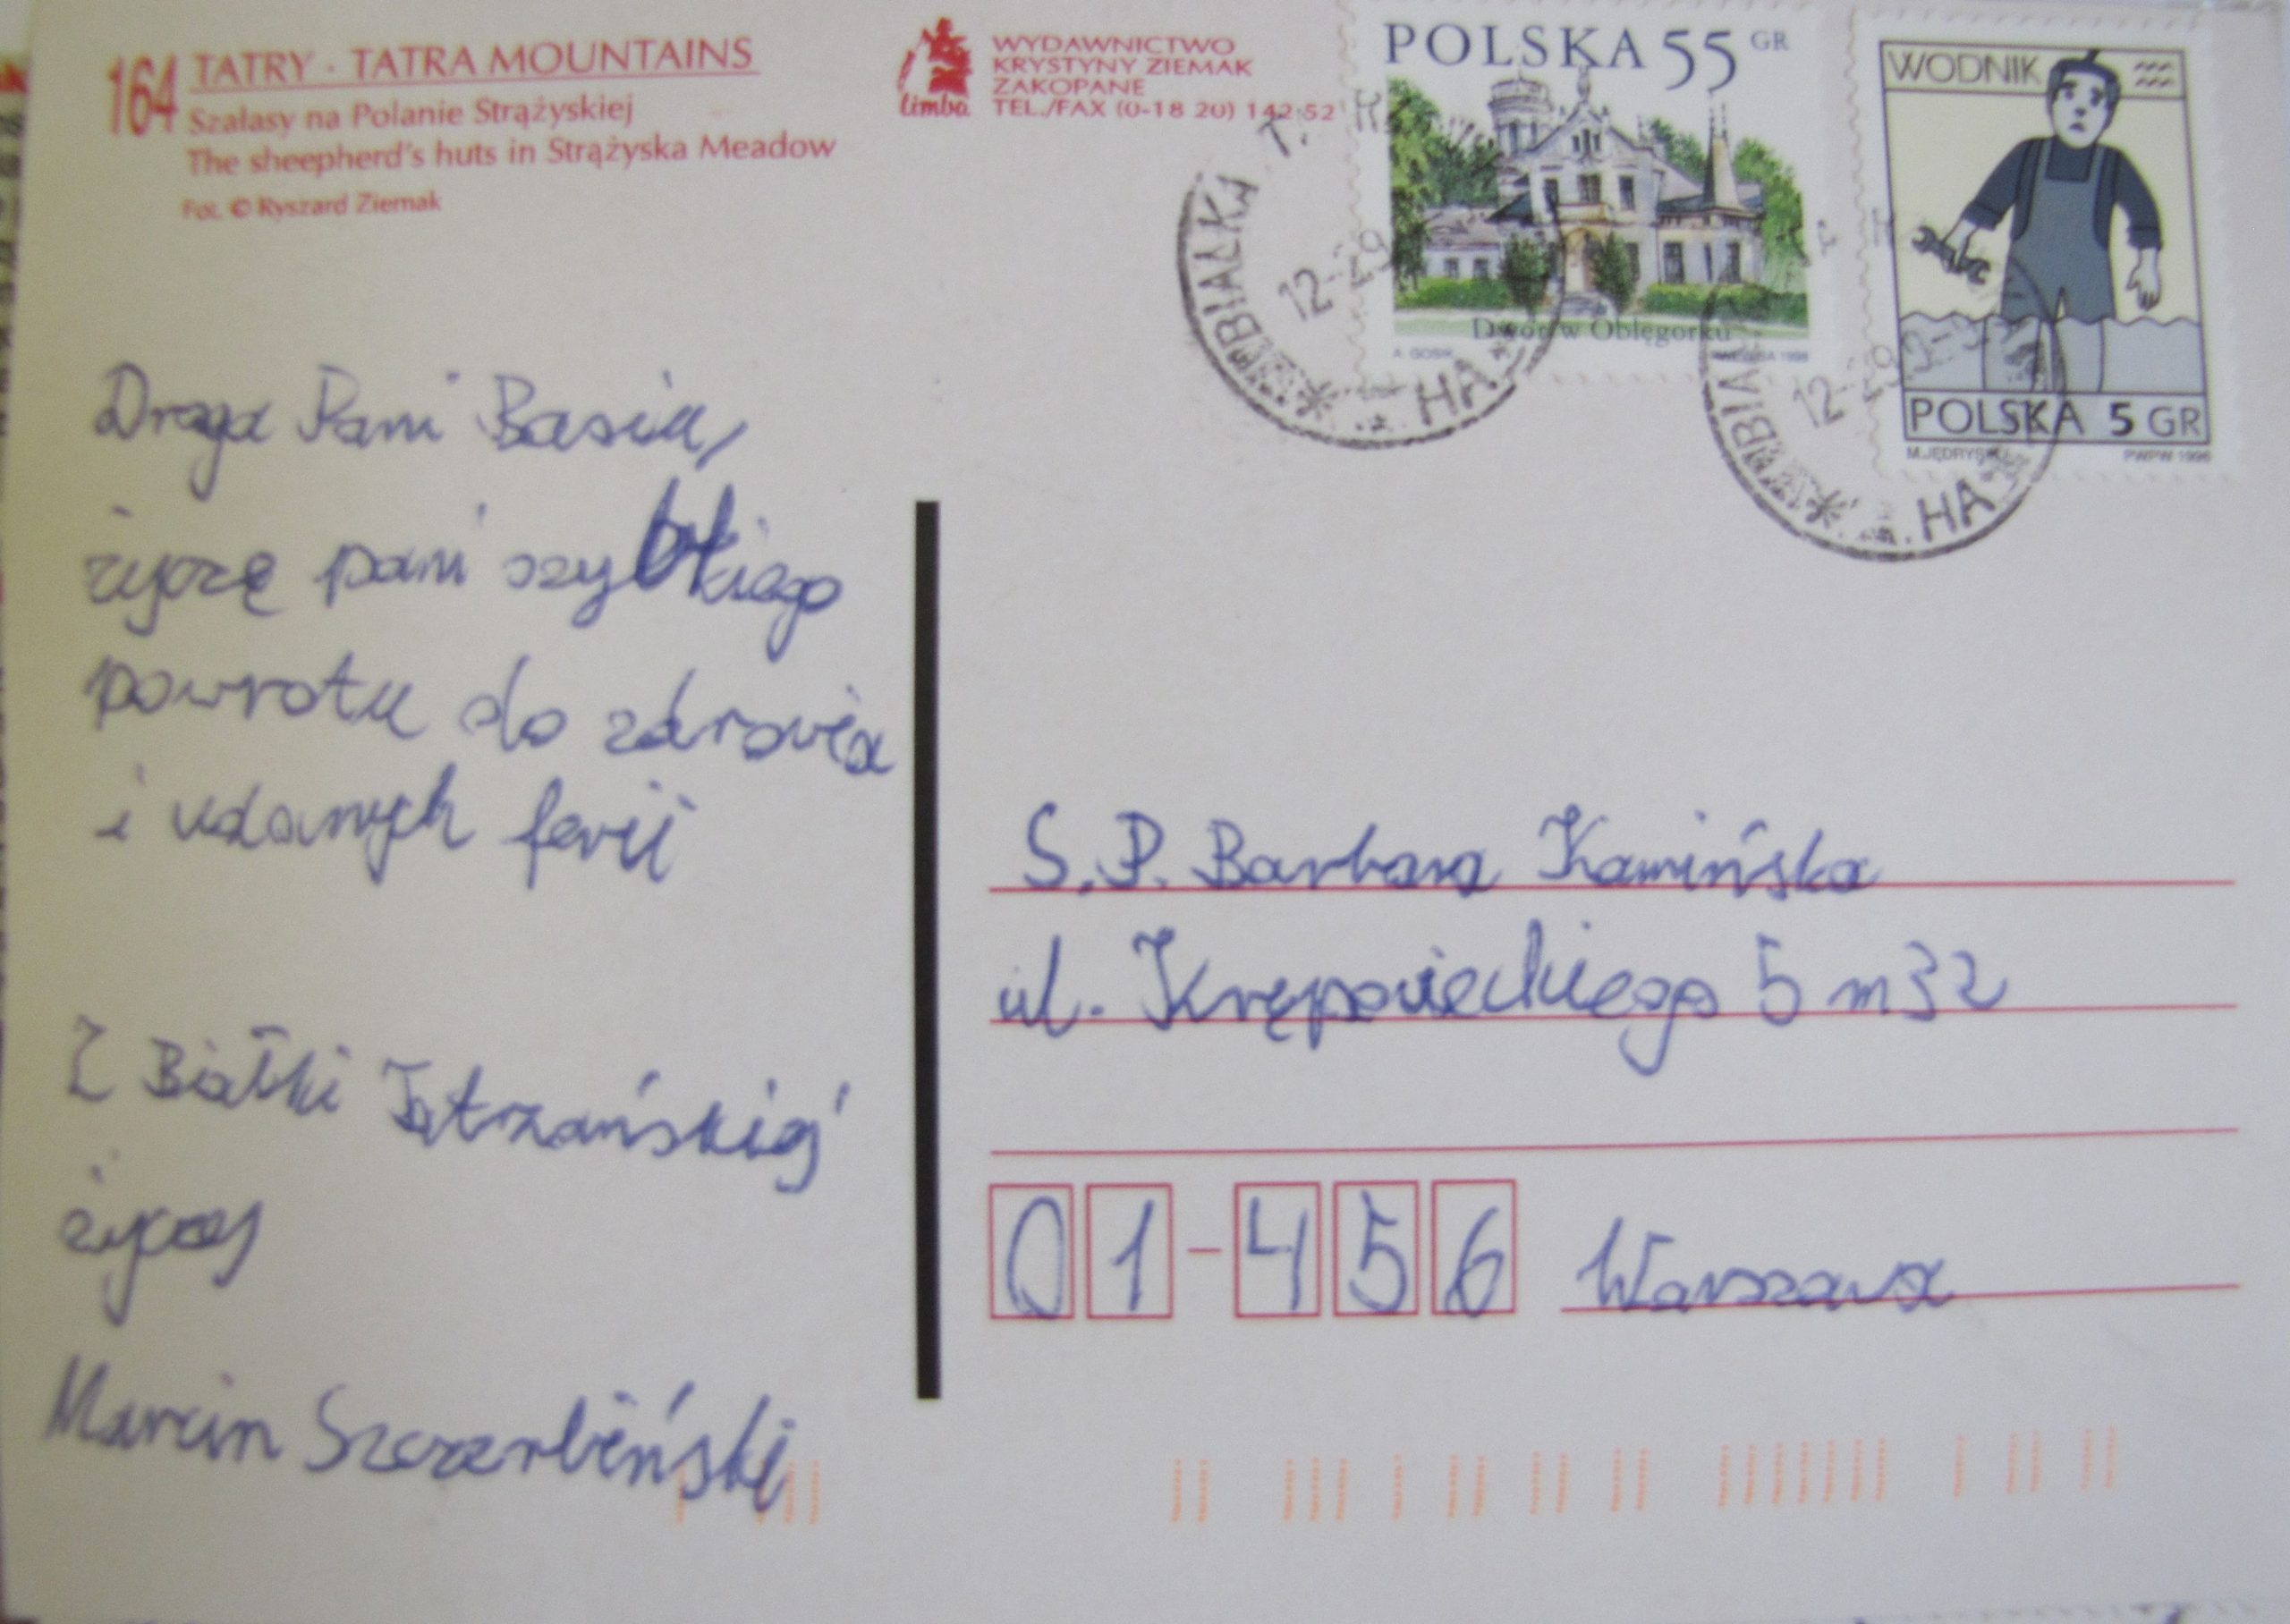 164 TATRY · TATRA MOUNTAINS
Szałasy na Polanie Strążyskiej
The sheepherd's huts in Strążyska Meadow
Fot. © Ryszard Ziemak
limba
WYDAWNICTWO
KRYSTYNY ZIEMAK
ZAKOPANE
TEL./FAX (0-18 20) 142 52
POLSKA 55 GR
Dwór w Oblęgorku
1998
WODNIK
POLSKA 5 GR
PWPW 1996
BIAŁKA T.
12-29
HA
12-29
HA
Droga Pani Basiu,
życzę pani szybkiego
powrotu do zdrowia
i udanych ferii
Z Białki Tatrzańskiej
życzy
Marcin Szczerbiński
S.P. Barbara Kamińska
ul. Krępowieckiego 5 m 32
01-456 Warszawa